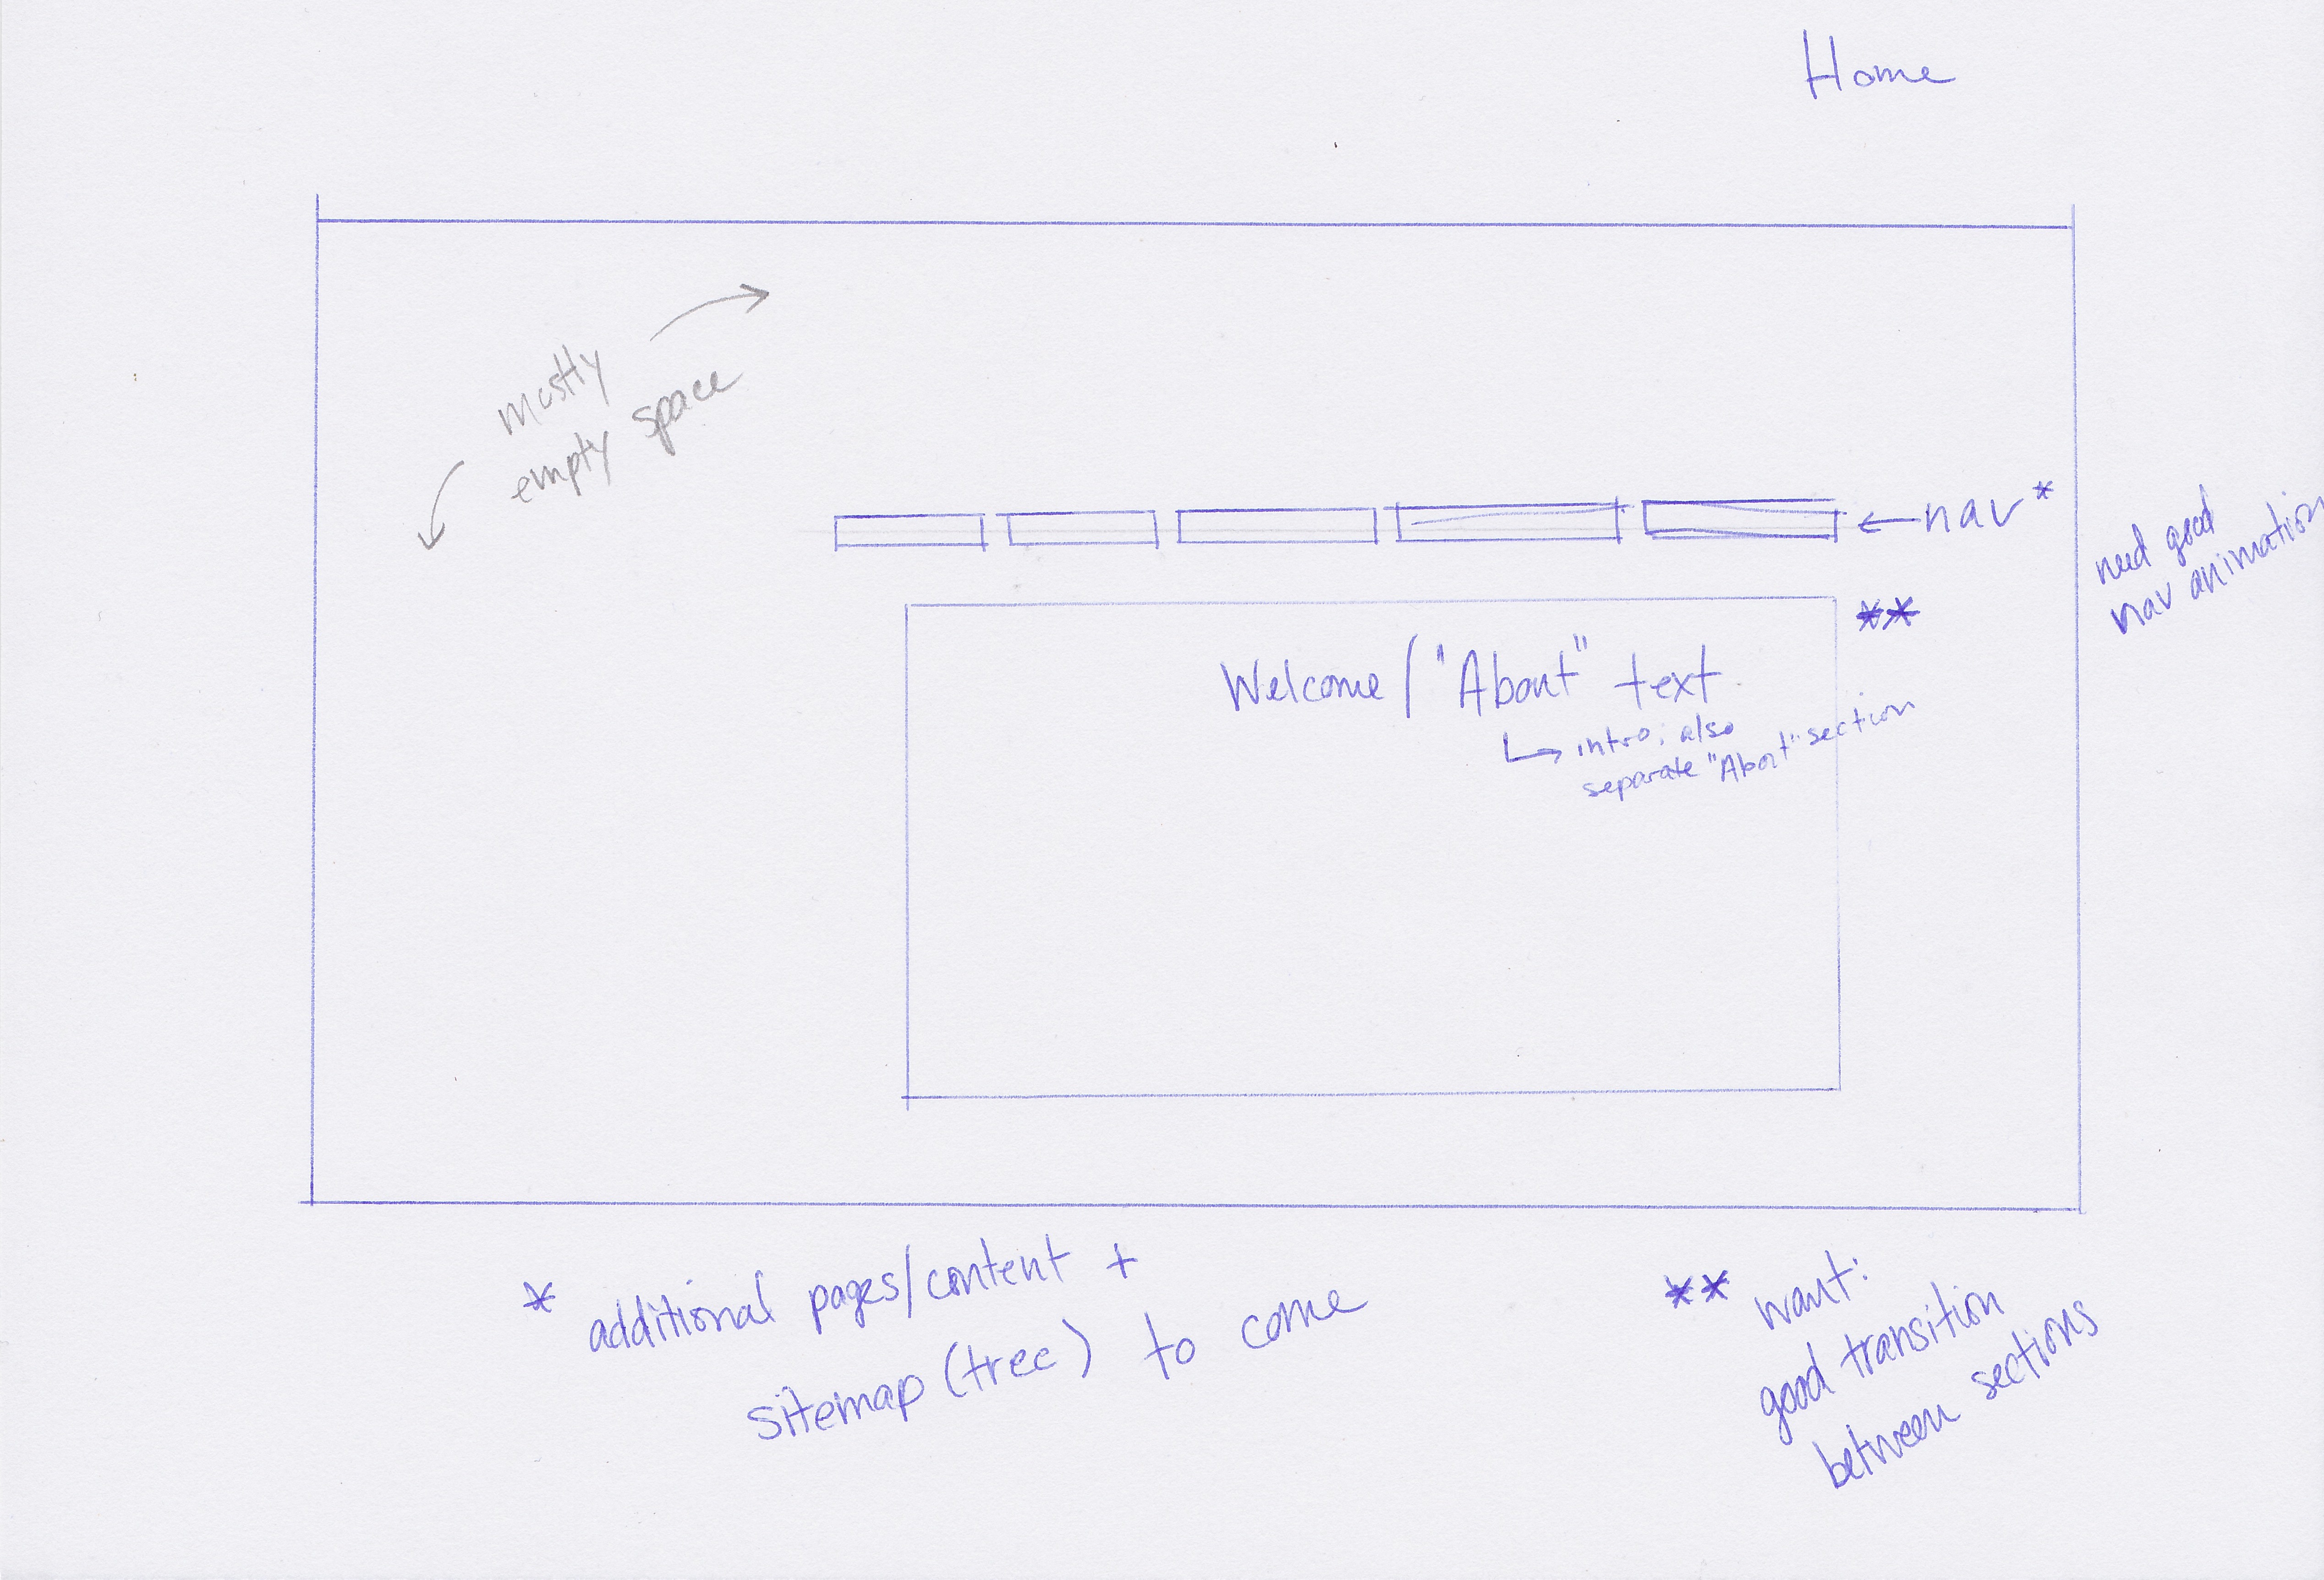 Home
mostly
empty space
←nav*
need good
nav animation
**
Welcome/"About" text
intro; also
separate "About" section
* additional pages/content +
sitemap (tree) to come
** want:
good transition
between sections